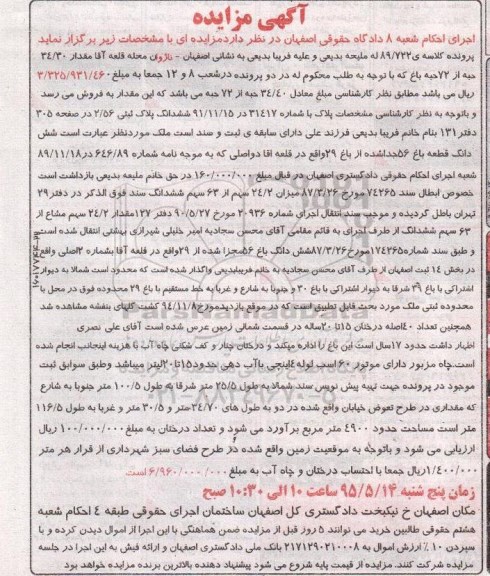 آگهی مزایده
اجرای احکام شعبه ۸ دادگاه حقوقی اصفهان در نظر دارد مزایده ای با مشخصات زیر برگزار نماید
پرونده کلاسه ی ۸۹/۷۲۲ له ملیحه بدیعی و علیه فریبا بدیعی به نشانی اصفهان - ناژوان محله قلعه آقا مقدار ۳۴/۳۰
حبه از ۷۲ حبه باغ که با توجه به طلب محکوم له در دو پرونده در شعب ۸ و ۱۲ جمعا به مبلغ ۳/۳۲۵/۹۳۱/۴۶۰
ریال می باشد مطابق نظر کارشناسی مبلغ معادل ۳۴/۴۰ حبه از ۷۲ حبه می باشد که این مقدار به فروش می رسد
و باتوجه به نظر کارشناسی مشخصات پلاک با شماره ۳۱۴۱۷ در ۹۱/۱۱/۱۵ ششدانگ پلاک ثبتی ۲/۵۶ در صفحه ۳۰۵
دفتر ۱۳۱ بنام خانم فریبا بدیعی فرزند علی دارای سابقه ی ثبت و سند است ملک موردنظر عبارت است شش
دانگ قطعه باغ ۵۶ جداشده از باغ ۲۹ واقع در قلعه اقا دواصلی که به موجه نامه شماره ۶۴۶/۸۹ در ۸۹/۱۱/۱۸
شعبه اجرای احکام حقوقی دادگستری اصفهان در قبال مبلغ ۱۶۰/۰۰۰/۰۰۰ در حق خانم ملیحه بدیعی بازداشت است
خصوص ابطال سند ۷۴۲۶۵ مورخ ۸۷/۳/۲۶ میزان ۲۴/۲ سهم از ۶۳ سهم ششدانگ سند فوق الذکر در دفتر ۲۹
تهران باطل گردیده و موجب سند انتقال اجرای شماره ۲۰۹۳۶ مورخ ۹۰/۵/۲۷ دفتر ۱۳۷ مقدار ۲۴/۲ سهم مشاع از
۶۳ سهم ششدانگ از طرف اجرای به قائم مقامی آقای محسن سجادیه امیر خلیلی شیرازی بهشتی انتقال شده است
و طبق سند شماره ۱۷۴۲۶۵ مورخ ۸۷/۳/۲۶ شش دانگ باغ ۵۶ مجزا شده از ۲۹ واقع در قلعه آقا بشماره ۲ اصلی واقع
در بخش ۱۴ ثبت اصفهان از طرف آقای محسن سجادیه به خانم فریبا بدیعی واگذار شده است که محدود است شمالا به دیوار
اشتراکی با باغ ۳۹ شرقا به دیوار اشتراکی با باغ ۳۰ و جنوبا به شارع و غربا به خط مستقیم با باغ ۲۹ محدوده فوق در محل با
محدوده ثبتی ملک مورد بحث قابل تطبیق است که در موقع بازدید مورخ ۹۴/۱۱/۸ کشت کلهای بنفشه مشاهده شد
همچنین تعداد ۴۰ اصله درختان ۱۵ تا ۲۰ ساله در قسمت شمالی زمین عرس شده است آقای علی نصری
اظهار داشت حدود ۱۷ سال است این باغ را اداره میکند و درختان چنار و کف شکنی چاه آب با هزینه اینجانب انجام شده
است. چاه مزبور دارای موتور ۶۰ اسب لوله ۴ اینچی با آب دهی حدود ۱۵ تا ۲۰ لیتر میباشد وطبق سوابق ثبت
موجود در پرونده جهت تهیه پیش نویس سند شمالا به طول ۲۵/۵ متر شرقا به طول ۱۰۰/۵ متر جنوبا به شارع
که مقداری در طرح تعوض خیابان واقع شده در دو به طول های ۳۴/۷۰ متر و ۳۰/۵ متر و غربا به طول ۱۱۶/۵
متر است مساحت حدود ۴۹۰۰ متر مربع برآورد می شود و تعداد درختان به مبلغ ۱۰۰/۰۰۰/۰۰۰ ریال
ارزیابی می شود و باتوجه به موقعیت زمین واقع شده در طرح فضای سبز شهرداری از قرار هر متر
۱/۴۰۰/۰۰۰ ریال جمعا با احتساب درختان و چاه آب به مبلغ ۶/۹۶۰/۰۰۰/۰۰۰ است
زمان پنج شنبه ۹۵/۵/۱۴ ساعت ۱۰ الی ۱۰:۳۰ صبح
مکان اصفهان خ نیکبخت دادگستری کل اصفهان ساختمان اجرای حقوقی طبقه ۴ احکام شعبه
هشتم حقوقی طالبین خرید می توانند ۵ روز قبل از مزایده ضمن هماهنگی با این اجرا از اموال دیدن کرده و با
سپردن ۱۰٪ ارزش اموال به ۲۱۷۱۲۹۰۲۱۰۰۰۸ بانک ملی دادگستری اصفهان و ارائه فیش به این اجرا در جلسه
مزایده شرکت کنند. مزایده از قیمت پایه شروع می شود پیشنهاد دهنده بالاترین برنده مزایده خواهد بود